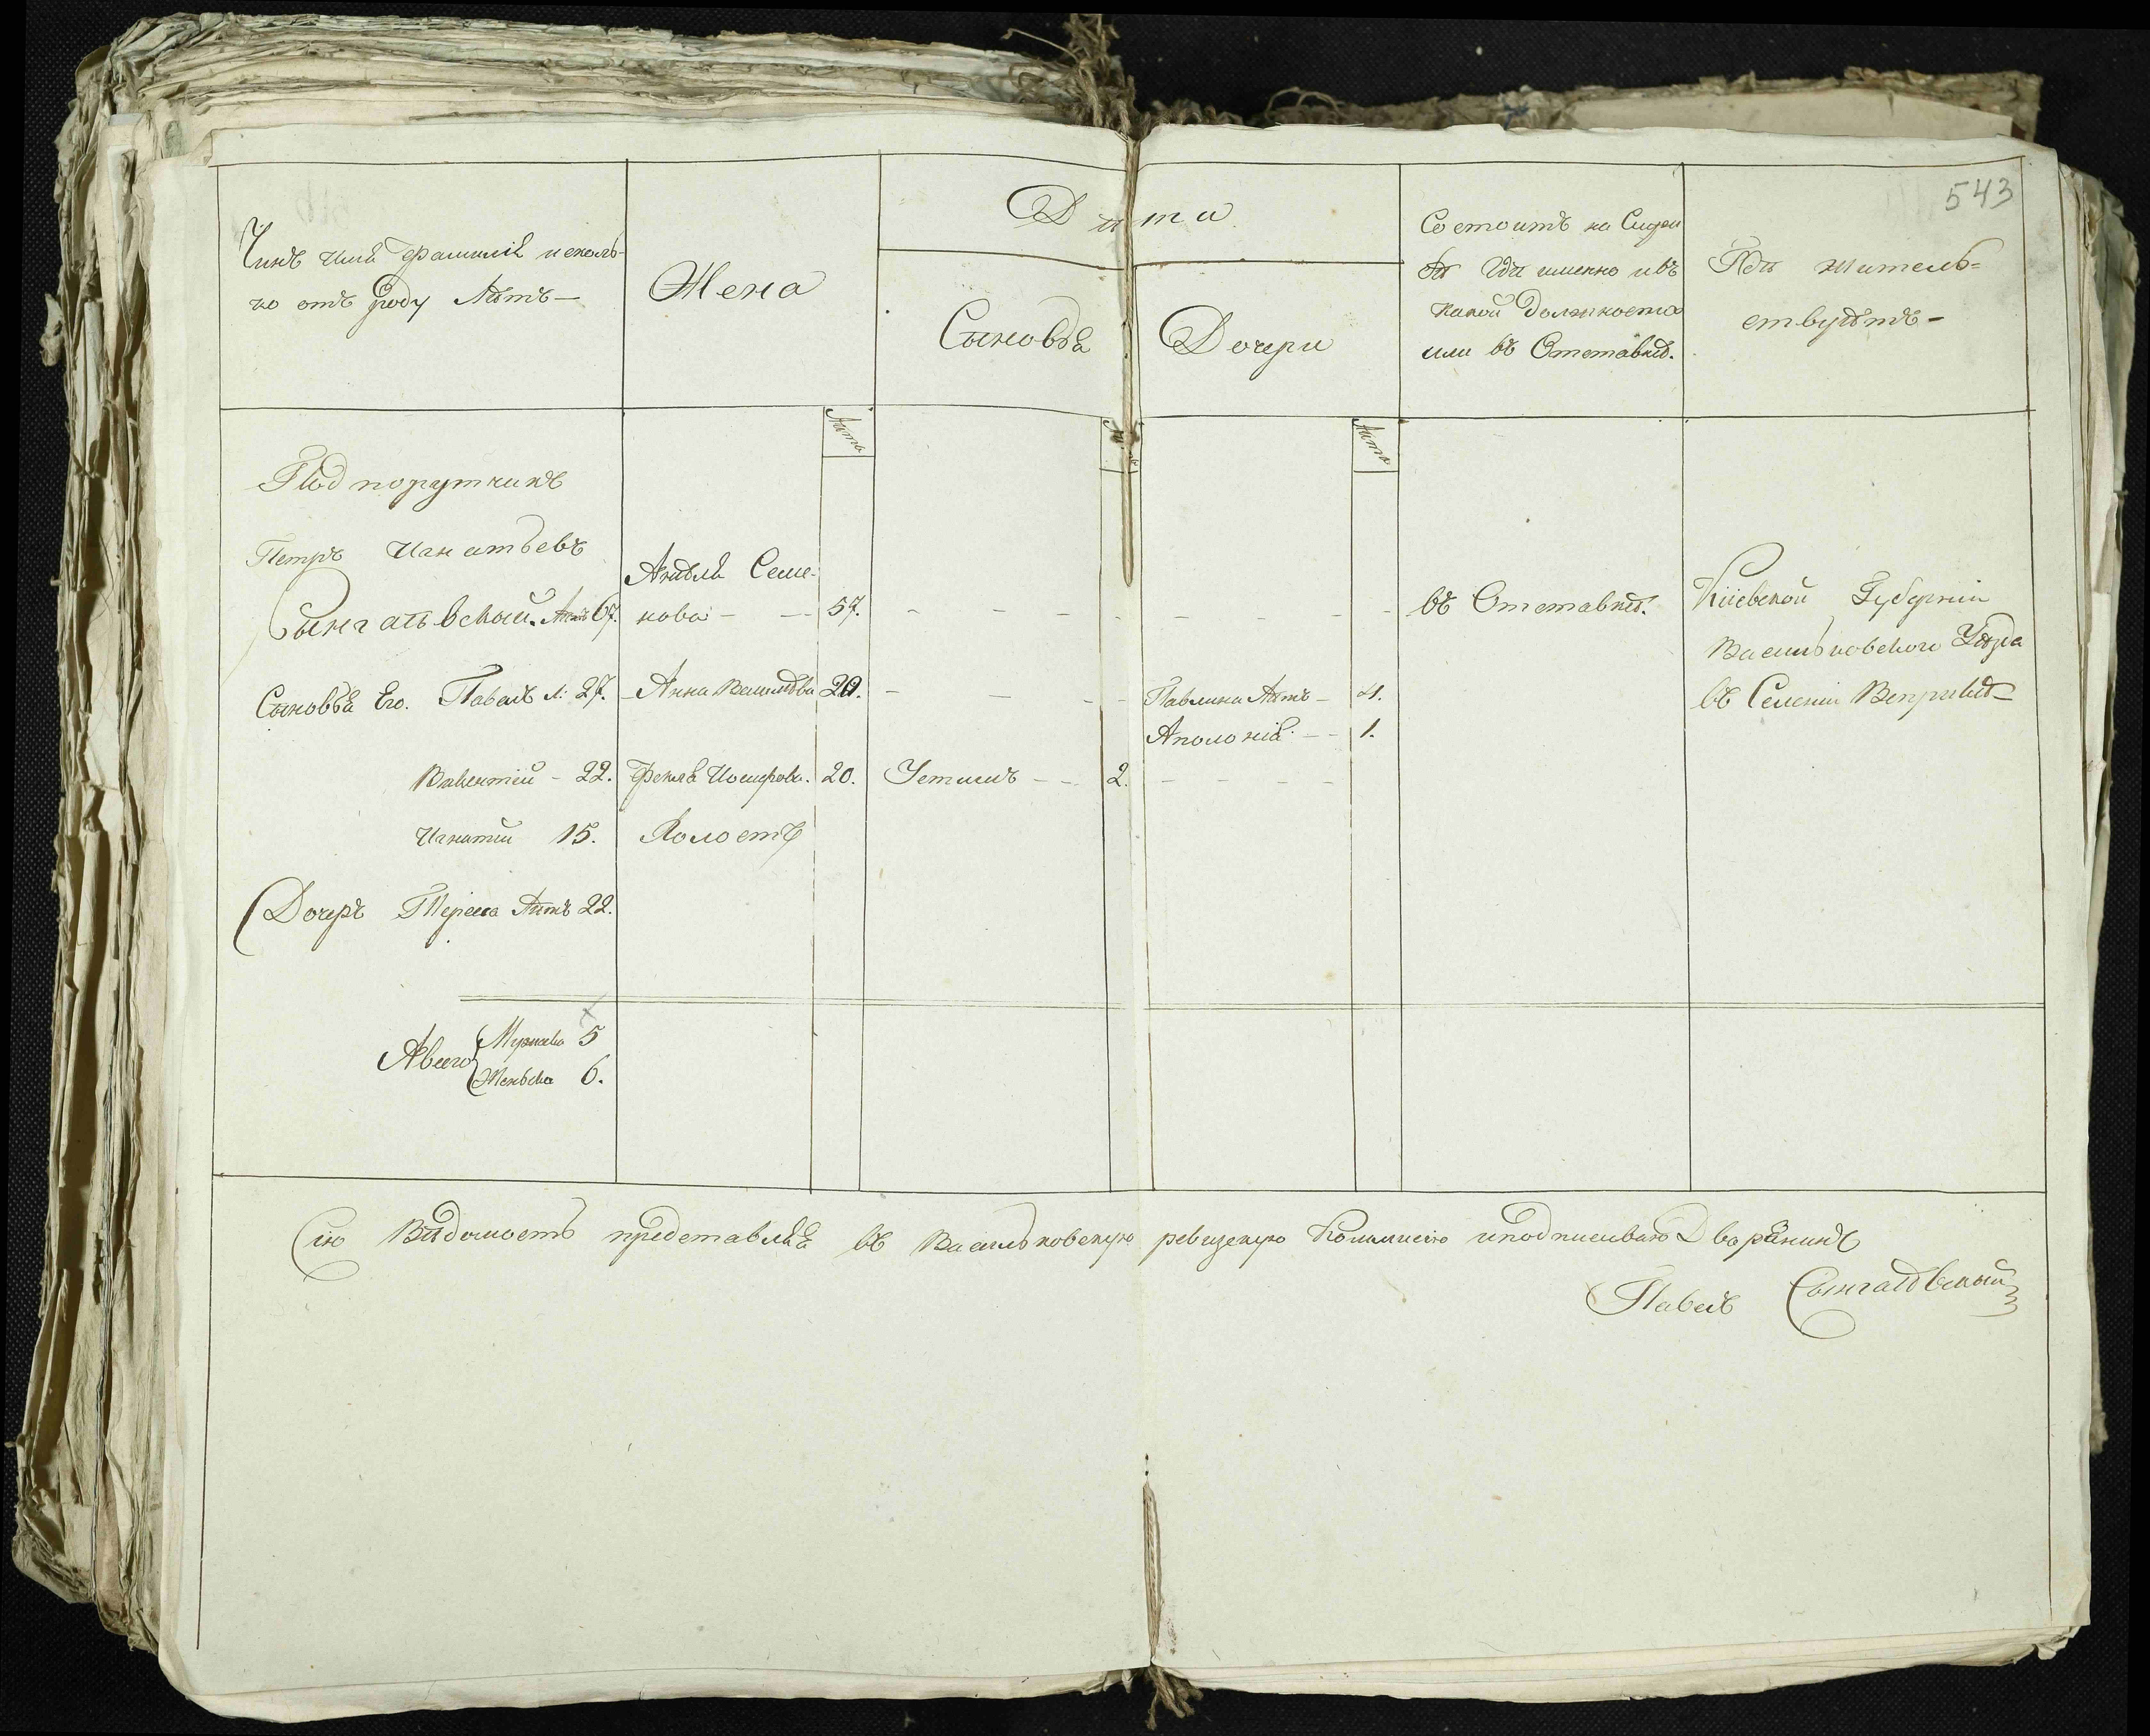 543
Чинъ имя Фамилія исколь-
ко отъ роду Лѣтъ —
Жена
Дѣти
Сыновья
Дочери
Состоитъ на Службѣ
Гдѣ именно ивъ
какой должности
или въ Отставкѣ.
Гдѣ жител-
ствуѣтъ —
Лѣта
Лѣта
Подпорутчикъ
Петръ Игнатьевъ
Лѣтъ 67.
Анѣля Семе-
нова — — 57.
въ Отставкѣ.
Кіевской Губерніи
Васильковского Уѣзда
въ Селеніи Веприкѣ —
Сыновья Его. Павелъ л: 27. Анна 20. Павлина Лѣтъ — 4.
Аполонія — 1.
Викентій — 22. Фекля Иосифова. 20. Устимъ — 2.
Игнатій 15. Холостъ
Дочеръ Тереса Лѣтъ 22.
Авсего Мужеска 5
Женьска 6.
Сию Вѣдомость представляя въ Васильковскую ревизскую Коммисию иподписиваю Дворянинъ
Павелъ